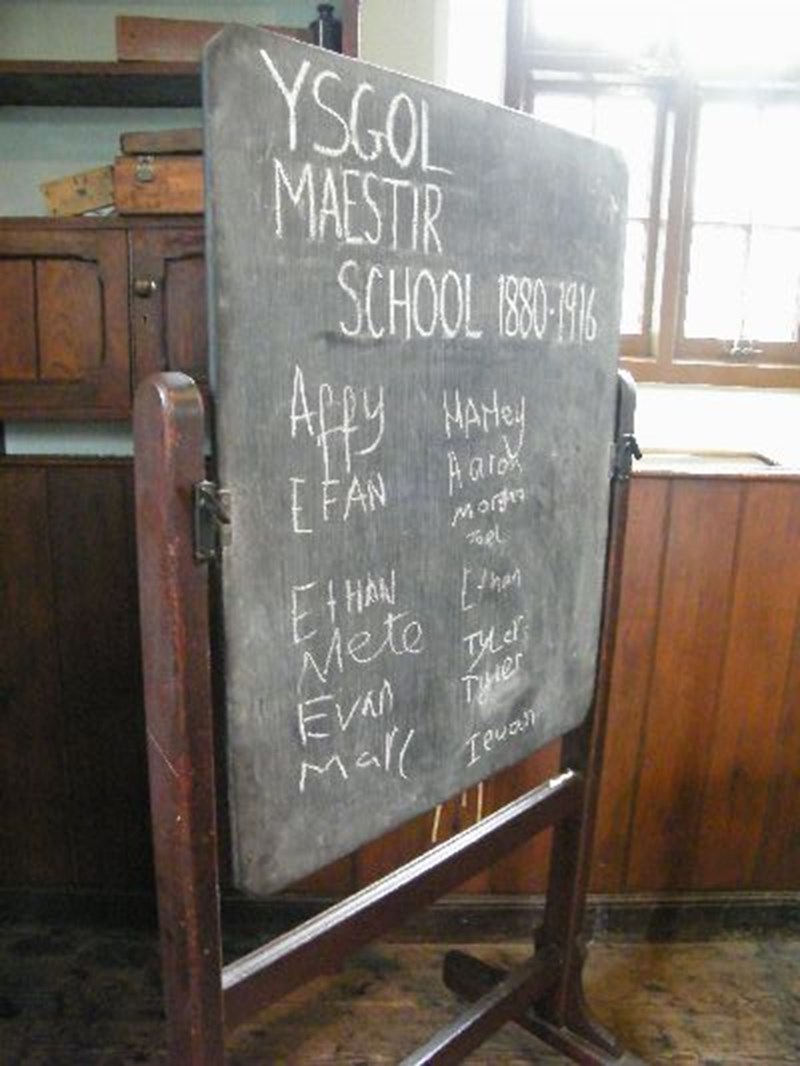 YSGOL
MAESTIR
SCHOOL 1880-1916
Affy
EFAN
EtHAN
Mete
Evan
Marc
HARley
Aaron
Morgan
Joel
Ethan
Tyler
Tyler
Ieuan